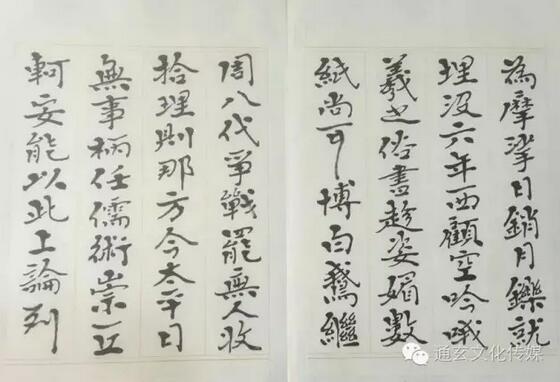 為摩挲日銷月鑠就
埋没六年西顧空吟哦
羲之俗書趁姿媚數
紙尚可博白鵞繼
周八代爭戰罷無人收
拾理則那方今太平日
無事柄任儒術崇丘
軻安能以此上論列
通玄文化传媒